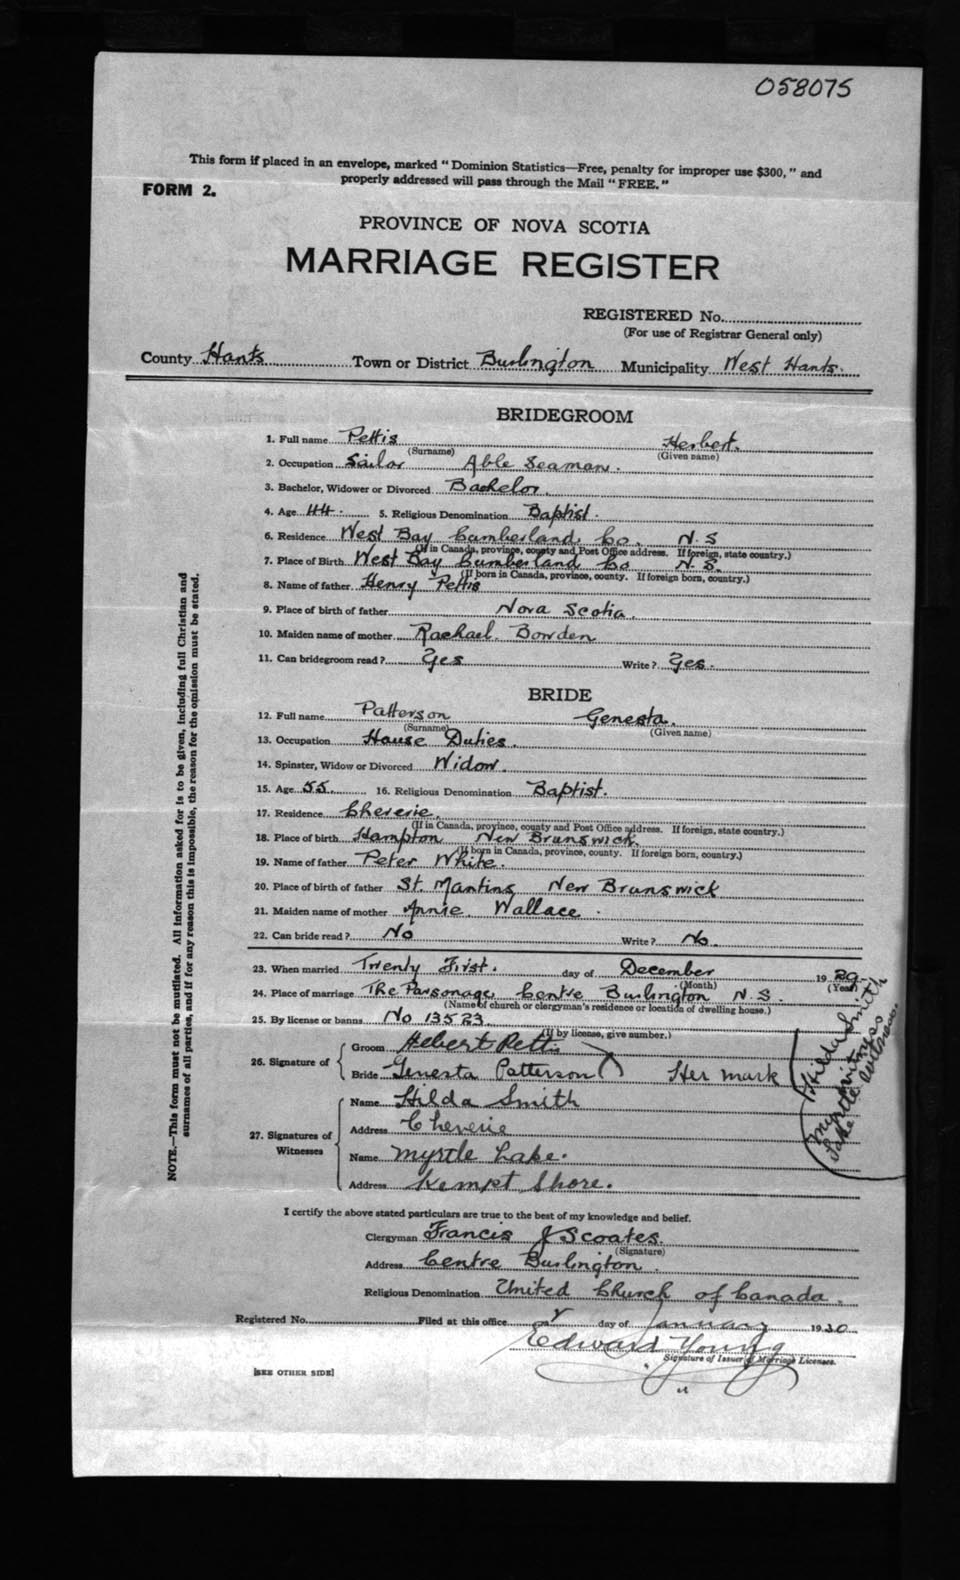 058075
This form if placed in an envelope, marked "Dominion Statistics—Free, penalty for improper use $300," and
properly addressed will pass through the Mail "FREE."
FORM 2.
PROVINCE OF NOVA SCOTIA
MARRIAGE REGISTER
REGISTERED No.
(For use of Registrar General only)
County Hants Town or District Burlington Municipality West Hants.
BRIDEGROOM
1. Full name Pettis Herbert.
(Surname) (Given name)
2. Occupation Sailor Able Seaman.
3. Bachelor, Widower or Divorced Bachelor.
4. Age 44. 5. Religious Denomination Baptist.
6. Residence West Bay Cumberland Co. N.S
(If in Canada, province, county and Post Office address. If foreign, state country.)
7. Place of Birth West Bay Cumberland Co N.S.
(If born in Canada, province, county. If foreign born, country.)
8. Name of father Henry Pettis
9. Place of birth of father Nova Scotia.
10. Maiden name of mother Rachael Bowden
11. Can bridegroom read? Yes Write? Yes.
BRIDE
12. Full name Patterson Genesta.
(Surname) (Given name)
13. Occupation House Duties.
14. Spinster, Widow or Divorced Widow.
15. Age 55. 16. Religious Denomination Baptist.
17. Residence Cheverie.
(If in Canada, province, county and Post Office address. If foreign, state country.)
18. Place of birth Hampton New Brunswick.
(If born in Canada, province, county. If foreign born, country.)
19. Name of father Peter White.
20. Place of birth of father St. Mantins New Brunswick
21. Maiden name of mother Annie Wallace.
22. Can bride read? No Write? No.
23. When married Twenty First. day of December 1929
(Month) (Year)
24. Place of marriage The Parsonage Centre Burlington N.S.
(Name of church or clergyman's residence or location of dwelling house.)
25. By license or banns No 13523
(If by license, give number.)
26. Signature of
Groom Hebert Pettis
Bride Genesta Patterson X Her mark
Hilda Smith
witness
Myrtle
Lake witness.
27. Signatures of
Witnesses
Name Hilda Smith
Address Cheverie
Name Myrtle Lake.
Address Kempt Shore.
I certify the above stated particulars are true to the best of my knowledge and belief.
Clergyman Francis J Scoates.
(Signature)
Address Centre Burlington.
Religious Denomination United Church of Canada.
Registered No. Filed at this office day of January 1930
Edward Young
Signature of Issuer of Marriage Licenses.
[SEE OTHER SIDE]
NOTE.—This form must not be mutilated. All information asked for is to be given, including full Christian and
surnames of all parties, and if for any reason this is impossible, the reason for the omission must be stated.